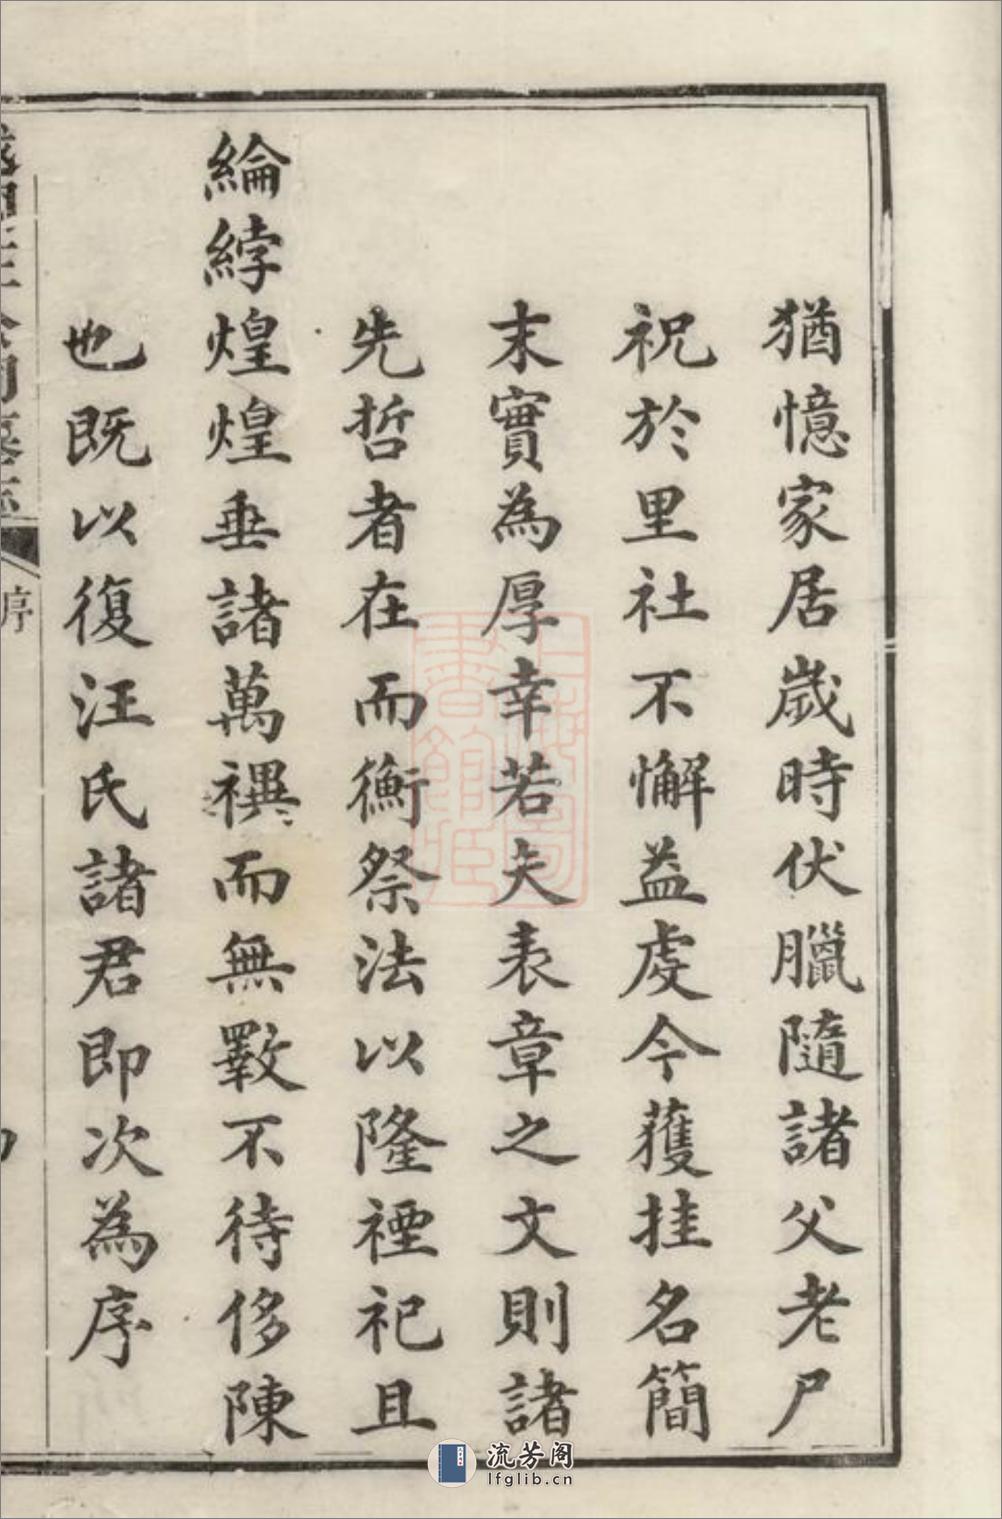 猶憶家居歲時伏臘隨諸父老尸
祝於里社不懈益虔今獲挂名簡
末實為厚幸若夫表章之文則諸
先哲者在而衡祭法以隆禋祀且
綸綍煌煌垂諸萬禩而無斁不待侈陳
也既以復汪氏諸君即次為序
序
流芳阁
lfglib.cn